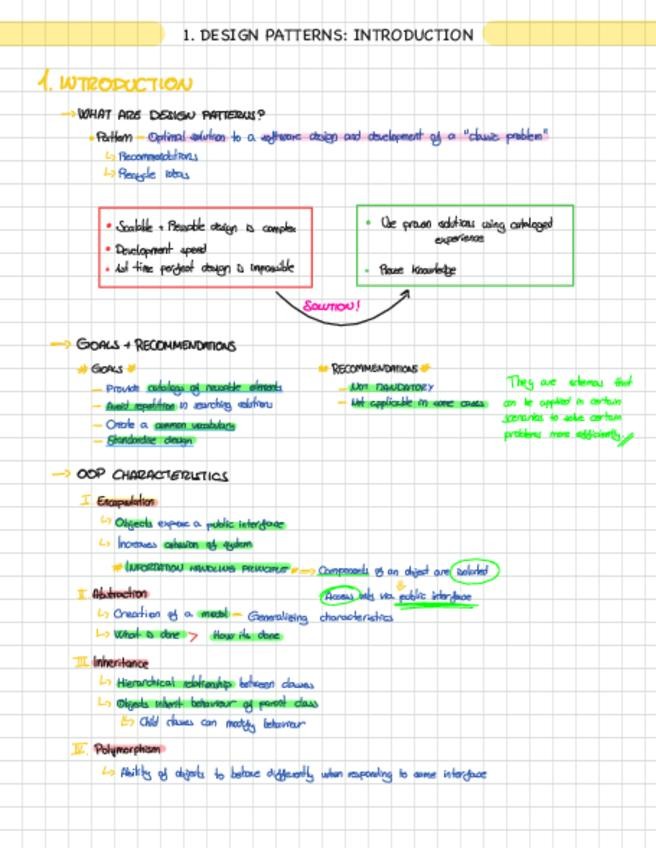 1. DESIGN PATTERNS: INTRODUCTION
1. INTRODUCTION
→ WHAT ARE DESIGN PATTERNS?
• Pattern — Optimal solution to a software design and development of a "classic problem"
↳ Recommendations
↳ Recycle ideas
• Scalable + Reusable design is complex
• Development speed
• 1st time perfect design is impossible
• Use proven solutions using cataloged
experience
• Reuse Knowledge
SOLUTION!
→ GOALS + RECOMMENDATIONS
* GOALS *
— Provide catalogs of reusable elements
— Avoid repetition in searching solutions
— Create a common vocabulary
— Standardise design
* RECOMMENDATIONS *
— NOT MANDATORY
— Not applicable in some cases
They are schemas that
can be applied in certain
scenarios to solve certain
problems more efficiently
→ OOP CHARACTERISTICS
I. Encapsulation
↳ Objects expose a public interface
↳ Increases cohesion of system
* INFORMATION HANDLING PRINCIPLE * → Components of an object are isolated
Access only via public interface
II. Abstraction
↳ Creation of a model — Generalizing characteristics
↳ What is done > How its done
III. Inheritance
↳ Hierarchical relationship between classes
↳ Objects inherit behaviour of parent class
↳ Child classes can modify behaviour
IV. Polymorphism
↳ Ability of objects to behave differently when responding to same interface